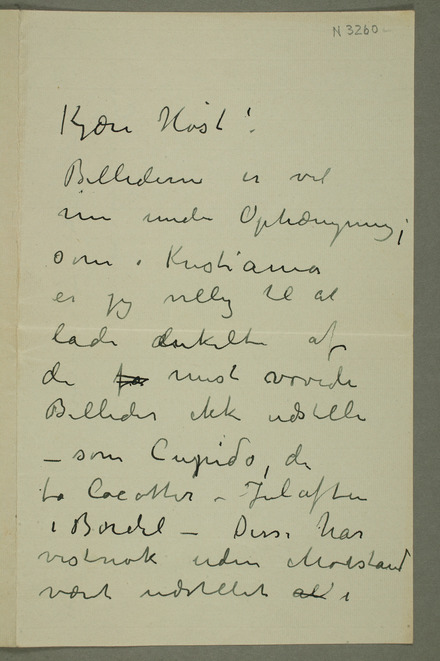 N 3260
Kjære Høst!
Billederne er vel
nu under Ophængning;
som i Kristiania
er jeg villig til at
lade enkelte af
de fa mest vovede
Billeder ikke udstille
– som Cupido, de
to Cocotter – Juleaften
i Bordel – Disse har
vistnok uden Modstand
været udstillet i